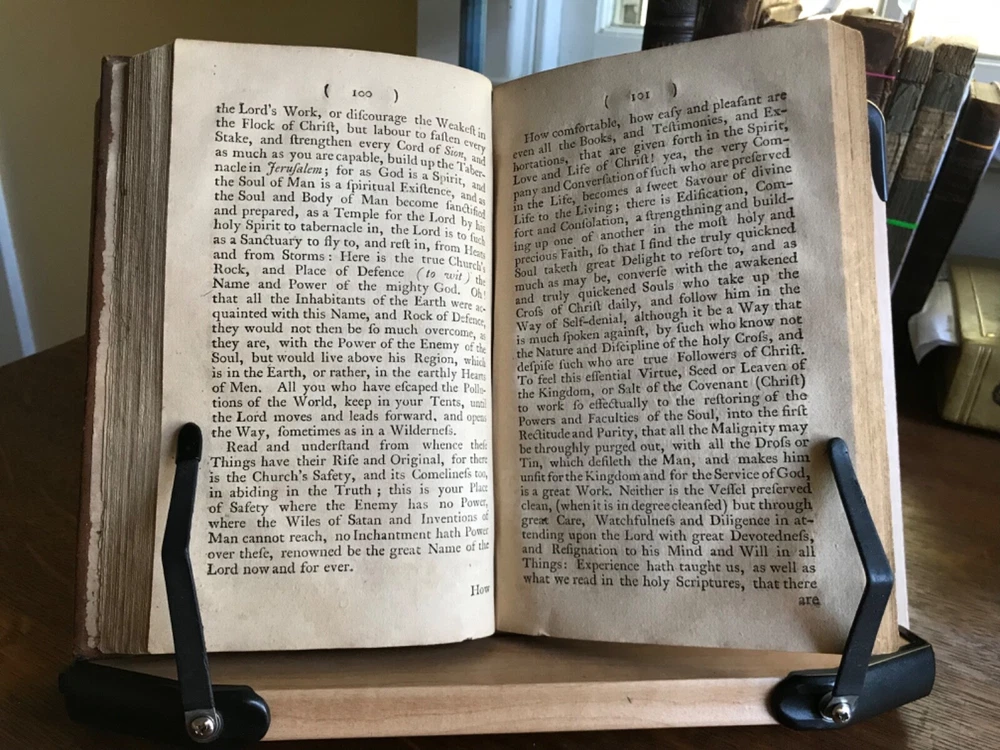 ( 100 )
the Lord's Work, or diſcourage the Weakeſt in
the Flock of Chriſt, but labour to faſten every
Stake, and ſtrengthen every Cord of Sion, and
as much as you are capable, build up the Taber-
nacle in Jeruſalem; for as God is a Spirit, and
the Soul of Man is a ſpiritual Exiſtence, and as
the Soul and Body of Man become ſanctified
and prepared, as a Temple for the Lord by his
holy Spirit to tabernacle in, the Lord is to ſuch
as a Sanctuary to fly to, and reſt in, from Heats
and from Storms: Here is the true Church's
Rock, and Place of Defence (to wit) the
Name and Power of the mighty God. Oh!
that all the Inhabitants of the Earth were ac-
quainted with this Name, and Rock of Defence,
they would not then be ſo much overcome, as
they are, with the Power of the Enemy of the
Soul, but would live above his Region, which
is in the Earth, or rather, in the earthly Hearts
of Men. All you who have eſcaped the Pollu-
tions of the World, keep in your Tents, until
the Lord moves and leads forward, and opens
the Way, ſometimes as in a Wilderneſs.
Read and underſtand from whence theſe
Things have their Riſe and Original, for there
is the Church's Safety, and its Comelineſs too,
in abiding in the Truth; this is your Place
of Safety where the Enemy has no Power,
where the Wiles of Satan and Inventions of
Man cannot reach, no Inchantment hath Power
over theſe, renowned be the great Name of the
Lord now and for ever.
How
( 101 )
How comfortable, how eaſy and pleaſant are
even all the Books, and Teſtimonies, and Ex-
hortations, that are given forth in the Spirit,
Love and Life of Chriſt! yea, the very Com-
pany and Converſation of ſuch who are preſerved
in the Life, becomes a ſweet Savour of divine
Life to the Living; there is Edification, Com-
fort and Conſolation, a ſtrengthning and build-
ing up one of another in the moſt holy and
precious Faith, ſo that I find the truly quickned
Soul taketh great Delight to reſort to, and as
much as may be, converſe with the awakened
and truly quickened Souls who take up the
Croſs of Chriſt daily, and follow him in the
Way of Self-denial, although it be a Way that
is much ſpoken againſt, by ſuch who know not
the Nature and Diſcipline of the holy Croſs, and
deſpiſe ſuch who are true Followers of Chriſt.
To feel this eſſential Virtue, Seed or Leaven of
the Kingdom, or Salt of the Covenant (Chriſt)
to work ſo effectually to the reſtoring of the
Powers and Faculties of the Soul, into the firſt
Rectitude and Purity, that all the Malignity may
be throughly purged out, with all the Droſs or
Tin, which defileth the Man, and makes him
unfit for the Kingdom and for the Service of God,
is a great Work. Neither is the Veſſel preſerved
clean, (when it is in degree cleanſed) but through
great Care, Watchfulneſs and Diligence in at-
tending upon the Lord with great Devotedneſs,
and Reſignation to his Mind and Will in all
Things: Experience hath taught us, as well as
what we read in the holy Scriptures, that there
are